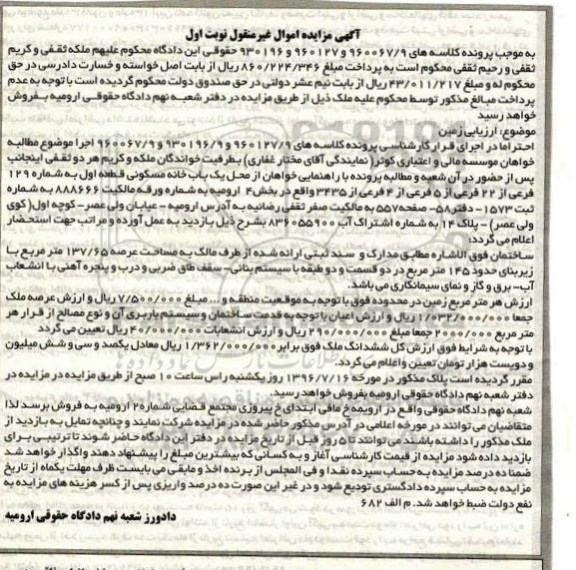 آگهی مزایده اموال غیرمنقول نوبت اول
به موجب پرونده کلاسه های ۹۶۰۰۶۷/۹ و ۹۶۰۱۲۷ و ۹۳۰۱۹۶ حقوقی این دادگاه محکوم علیهم ملکه ثقفی و کریم
ثقفی و رحیم ثقفی محکوم است به پرداخت مبلغ ۸۶۰/۲۲۴/۳۴۶ ریال از بابت اصل خواسته و خسارت دادرسی در حق
محکوم له و مبلغ ۴۳/۰۱۱/۲۱۷ ریال از بابت نیم عشر دولتی در حق صندوق دولت محکوم گردیده است با توجه به عدم
پرداخت مبالغ مذکور توسط محکوم علیه ملک ذیل از طریق مزایده در دفتر شعبه نهم دادگاه حقوقی ارومیه بفروش
خواهد رسید
موضوع: ارزیابی زمین
احتراما در اجرای قرار کارشناسی پرونده کلاسه های ۹۶۰۱۲۷/۹ و ۹۳۰۱۹۶/۹ و ۹۶۰۰۶۷/۹ اجرا موضوع مطالبه
خواهان موسسه مالی و اعتباری کوثر (نمایندگی آقای مختار غفاری) بطرفیت خواندگان ملکه و کریم هر دو ثقفی اینجانب
پس از حضور در آن شعبه و مطالبه پرونده با راهنمایی خواهان از محل یک باب خانه مسکونی قطعه اول به شماره ۱۲۹
فرعی از ۲۲ فرعی از ۵ فرعی از ۴ فرعی از ۳۴۳۵ واقع در بخش ۴ ارومیه به شماره ورقه مالکیت ۸۸۸۶۶۶ به شماره
ثبت ۱۵۷۳- دفتر ۵۸- صفحه ۵۵۷ به مالکیت صفر ثقفی رضائیه به آدرس ارومیه - خیابان ولی عصر- کوچه اول (کوی
ولی عصر) - پلاک ۱۴ به شماره اشتراک آب ۸۳۶۰۵۵۹۰۰ بشرح ذیل بازدید به عمل آورده و مراتب جهت استحضار
اعلام می گردد:
ساختمان فوق الاشاره مطابق مدارک و سند ثبتی ارائه شده از طرف مالک به مساحت عرصه ۱۳۷/۶۵ متر مربع با
زیربنای حدود ۱۴۵ متر مربع در دو قسمت و دو طبقه با سیستم بنائی- سقف طاق ضربی و درب و پنجره آهنی با انشعاب
آب- برق و گاز و نمای سیمانکاری می باشد.
ارزش هر متر مربع زمین در محدوده فوق با توجه به موقعیت منطقه و ... مبلغ ۷/۵۰۰/۰۰۰ ریال و ارزش عرصه ملک
جمعا ۱/۰۳۲/۰۰۰/۰۰۰ ریال و ارزش اعیان با توجه به قدمت ساختمان و سیستم باربری آن و نوع مصالح از قرار هر
متر مربع ۲۰۰۰/۰۰۰ جمعا مبلغ ۲۹۰/۰۰۰/۰۰۰ ریال و ارزش انشعابات ۴۰/۰۰۰/۰۰۰ ریال تعیین می گردد
با توجه به شرایط فوق ارزش کل ششدانگ ملک فوق برابر ۱/۳۶۲/۰۰۰/۰۰۰ ریال معادل یکصد و سی و شش میلیون
و دویست هزار تومان تعیین و اعلام می گردد.
مقرر گردیده است پلاک مذکور در مورخه ۱۳۹۶/۷/۱۶ روز یکشنبه راس ساعت ۱۰ صبح از طریق مزایده در مزایده در
دفتر شعبه نهم دادگاه حقوقی ارومیه بفروش خواهد رسید.
شعبه نهم دادگاه حقوقی واقع در ارومیه خ مافی ابتدای خ پیروزی مجتمع قضایی شماره ۲ ارومیه به فروش برسد لذا
متقاضیان می توانند در مورخه اعلامی در آدرس مذکور حاضر شده در مزایده شرکت نمایند و چنانچه تمایل به بازدید از
ملک مذکور را داشته باشند می توانند تا ۵ روز قبل از تاریخ مزایده در دفتر این دادگاه حاضر شوند تا ترتیبی برای
بازدید داده شود مزایده از قیمت کارشناسی آغاز و به کسانی که بیشترین مبلغ را پیشنهاد دهند واگذار خواهد شد
ضمنا ده درصد مزایده به حساب سپرده نقدا و فی المجلس از برنده اخذ و مابقی می بایست ظرف مهلت یکماه از تاریخ
مزایده به حساب سپرده دادگستری تودیع شود و در غیر این صورت ده درصد واریزی پس از کسر هزینه های مزایده به
نفع دولت ضبط خواهد شد. م الف ۶۸۲
دادورز شعبه نهم دادگاه حقوقی ارومیه